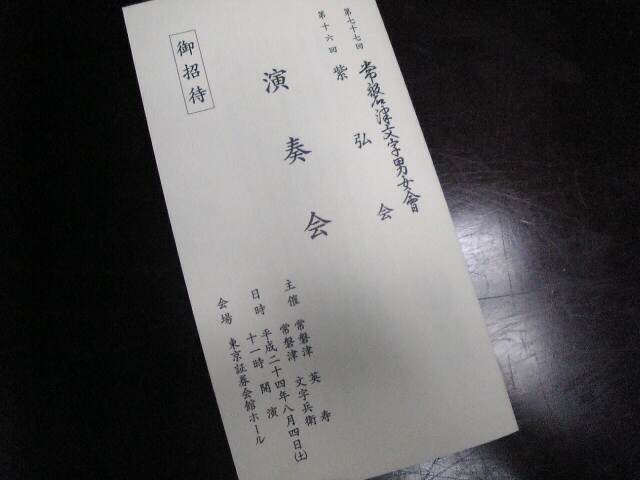 第七十七回 常磐津文字男女會
第十六回 紫弘会
演奏会
御招待
主催 常磐津 英寿
常磐津 文字兵衛
日時 平成二十四年八月四日(土)
十一時開演
会場 東京証券会館ホール